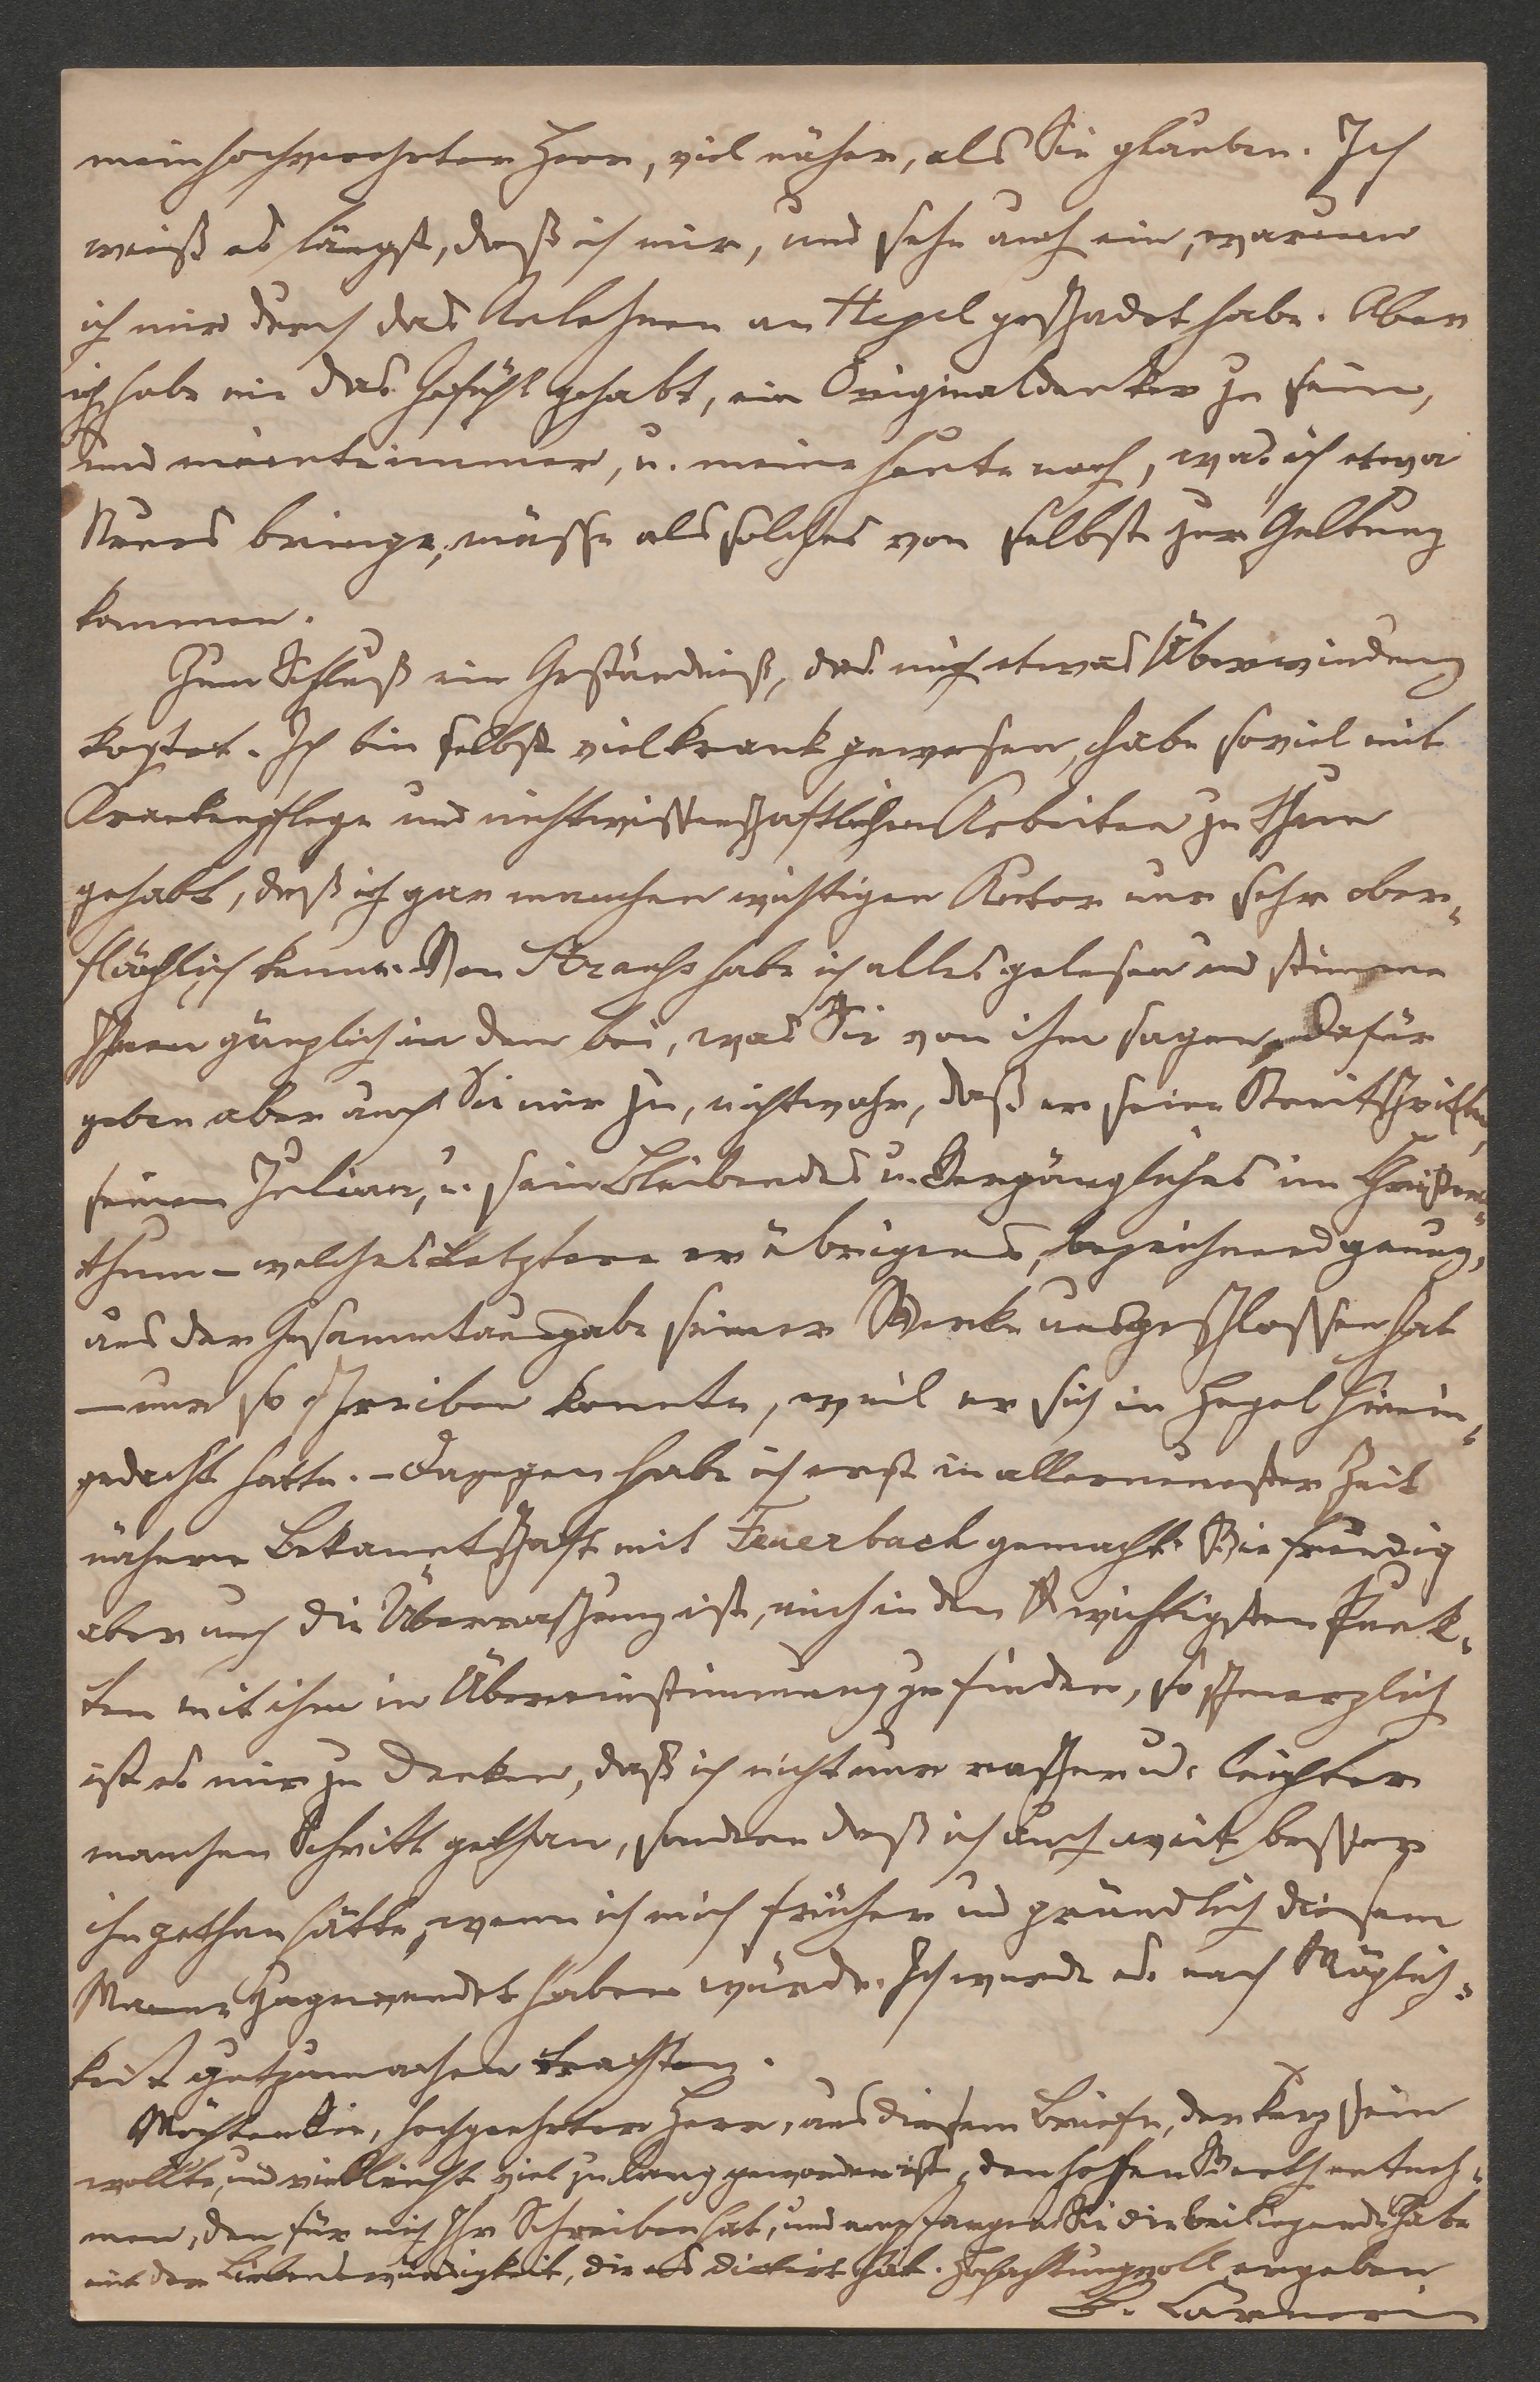 mein hochverehrter Herr, viel näher, als Sie glauben. Ich
weiß es längst, daß ich mir, und sehe auch ein, warum
ich mir durch das Anlehnen an Hegel geschadet habe. Aber
ich habe nie das Gefühl gehabt, ein Originaldenker zu sein,
und meinte immer, u. meine heute noch, was ich etwa
Neues bringe, müsse als solches von selbst zur Geltung
kommen.
Zum Schluß ein Geständniß, das mich etwas Überwindung
kostet. Ich bin selbst viel krank gewesen, habe soviel mit
Krankenpflege und nichtwissenschaftlichen Arbeiten zu thun
gehabt, daß ich gar manchen wichtigen Autor nur sehr ober-
flächlich kenne. Von Strauß habe ich alles gelesen und stimme
Ihnen gänzlich in dem bei, was Sie von ihm sagen. Dafür
geben aber auch Sie mir zu, nichtwahr, daß er seine Streitschriften,
seinen Julian, u. sein Bleibendes u. Vergängliches im Christen-
thum – welches Letztere er übrigens, bezeichnend genug,
aus der Gesammtausgabe seiner Werke ausgeschlossen hat
– nur so schreiben konnte, weil er sich in Hegel hinein-
gedacht hatte. – Dagegen habe ich erst in allerneuester Zeit
nähere Bekanntschaft mit Feuerbach gemacht. Wie freudig
aber auch die Überraschung ist, mich in den wichtigsten Punk-
ten mit ihm in Übereinstimmung zu finden, so schmerzlich
ist es mir zu denken, daß ich nicht nur rascher u. leichter
manchen Schritt gethan, sondern daß ich auch weit besser
ihn gethan hätte, wenn ich mich früher und gründlich diesem
Manne zugewendet haben würde. Ich werde es nach Möglich-
keit gutzumachen trachten.
Möchten Sie, hochgeehrter Herr, aus diesem Briefe, der kurz sein
wollte, und vielleicht viel zu lang geworden ist, den hohen Werth entneh-
men, den für mich Ihr Schreiben hat, und empfangen Sie die beiliegende Gabe
mit der Liebenswürdigkeit, die es dictirt hat. Hochachtungsvoll ergeben
B. Carneri